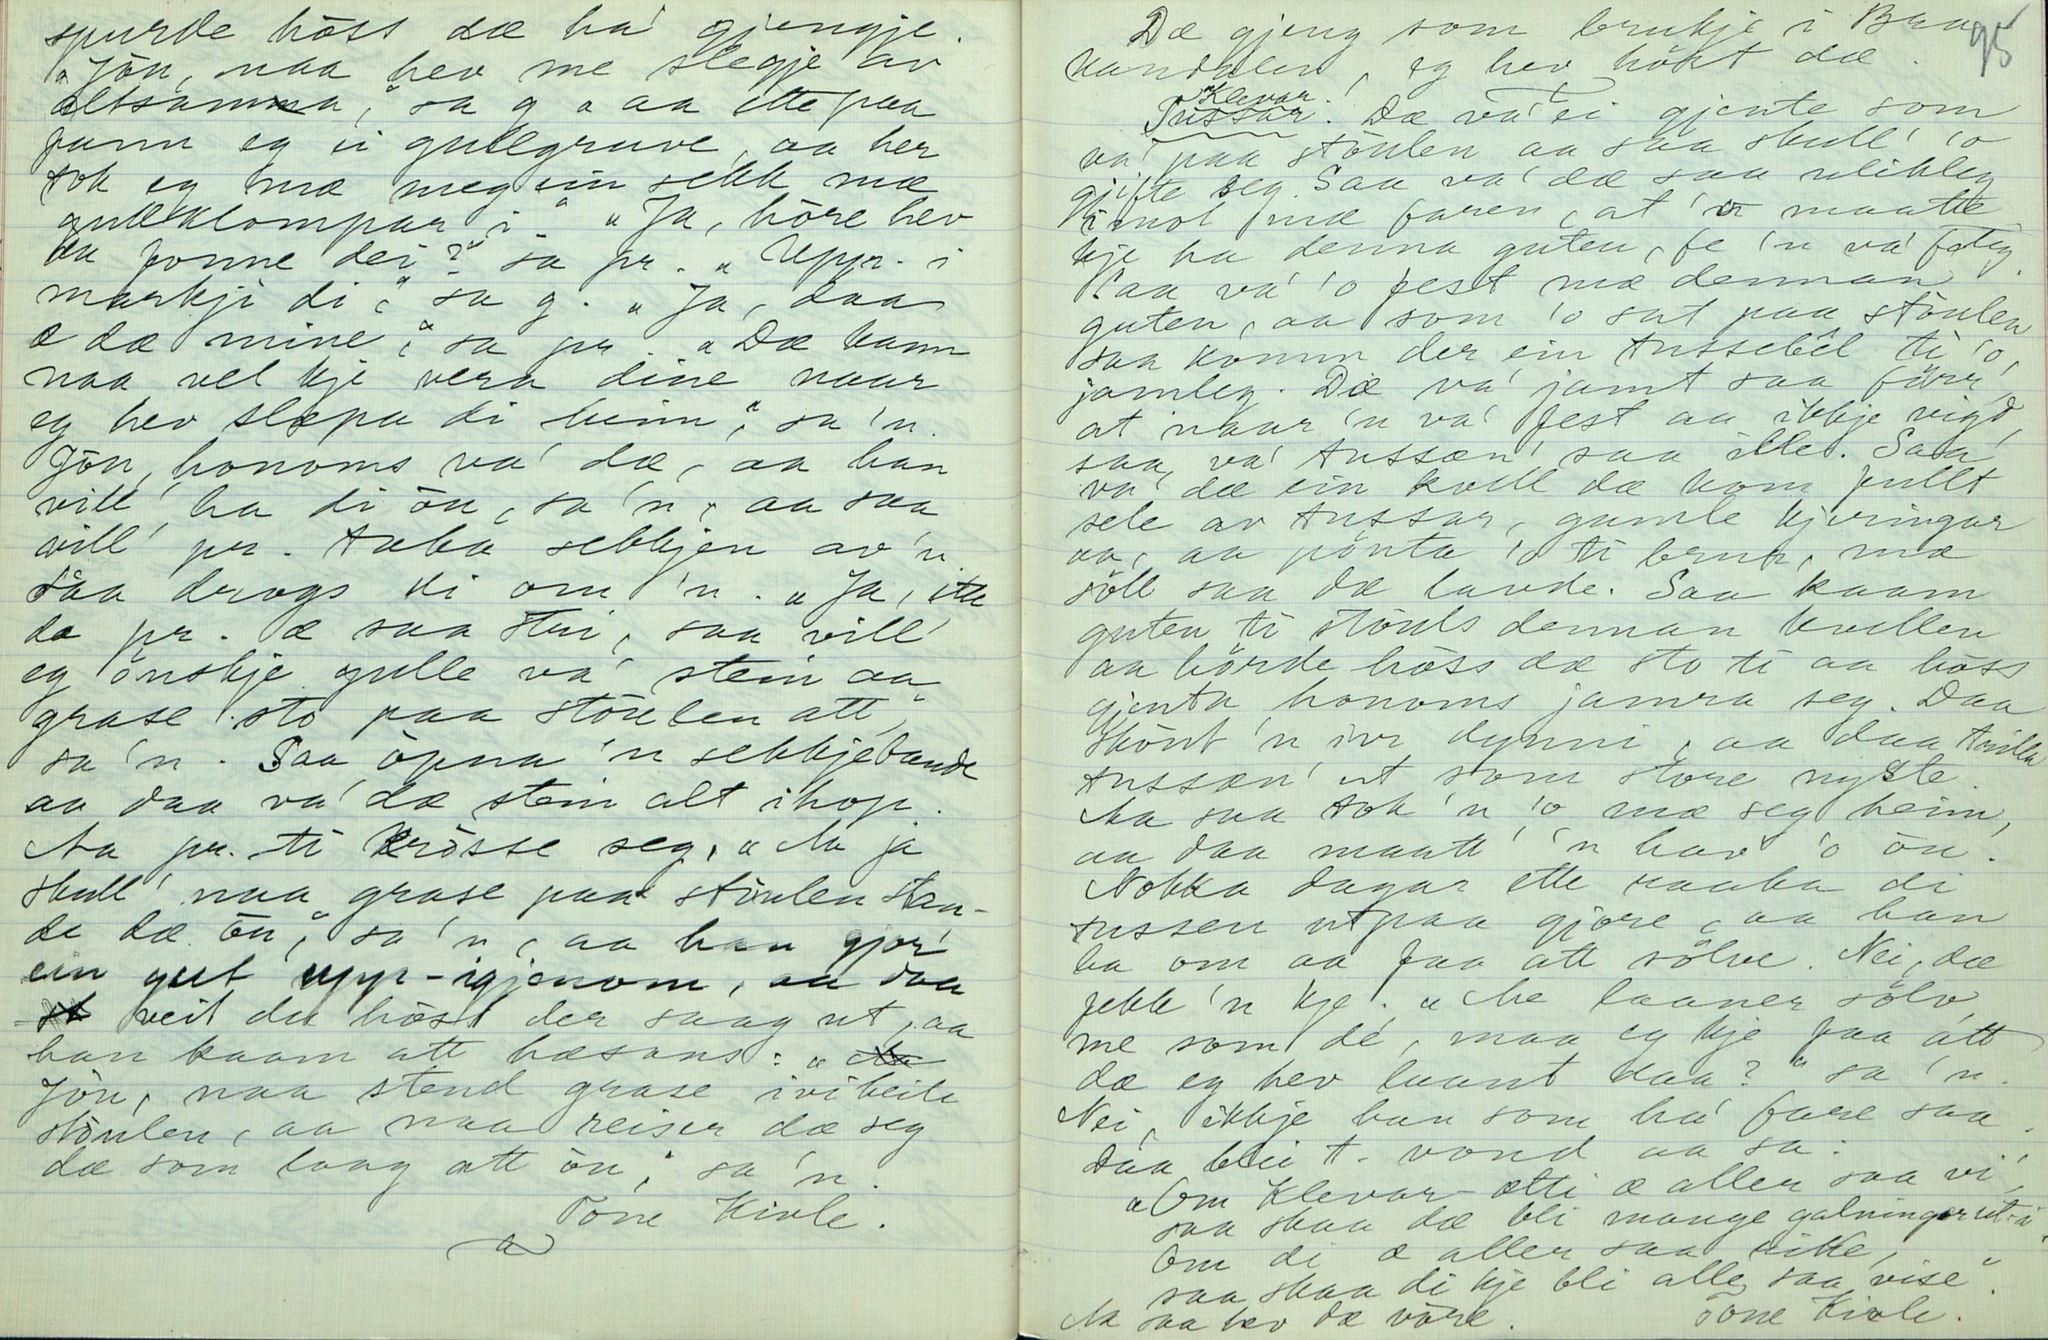 spurde höss dæ ha' gjengje.
"Jön, naa hev me slegje av
altsamma," sa g "aa ette paa
fann eg ei gullgruve, aa her
tok eg mæ meg ein sekk mæ
gullklompar i." "Ja, höre hev
du fonne dei?" sa pr. "Upp i
markji di," sa g. "Ja, daa
æ dæ mine," sa pr. "Dæ kann
naa vel kje vera dine naar
eg hev slepa di heim," sa 'n.
Jön, honoms va' dæ, aa han
vill' ha di ön, sa 'n, aa saa
vill' pr. taka sekkjen av 'n.
Saa drogs di om 'n. "Ja, itte
da pr. æ saa stri, saa vill'
eg önskje gulle va' stein aa
grase sto paa stöulen att,"
sa 'n. Saa öpna 'n sekkjebande
aa daa va' dæ stein alt ihop.
Aa pr. ti krösse seg, "Aa ja
skull' naa grase paa stöulen stan-
de dæ ön," sa 'n, aa han gjor'
ein gut upp-igjenom, aa daa
veit du höss der saag ut, aa
han kaam att hæsans: "
Jön, naa stend grase ivi heile
stöulen, aa naa reiser dæ seg
dæ som laag att ön," sa 'n.
Tone Kivle.
95
Dæ gjeng som brukje i Bra
kandalen, eg hev hökt dæ.
Klevar.
Tussar. Dæ va' ei gjente som
va' paa stöulen aa saa skull' 'o
gjifte seg. Saa va' dæ saa ulikleg
imot mæ faren, at 'o maatte
kje ha denna guten, fe 'n va' fatig.
Saa va' 'o fest mæ denman
guten, aa som 'o sat paa stöulen
saa komm der ein tussebél ti 'o,
jamleg. Dæ va' jamt saa förr,
at naar 'n va' fest aa ikkje vigd,
saa va' tussæn' saa ille. Saa
va' dæ ein kvell dæ kom fullt
sele av tussar, gamle kjeringar
aa, aa pönta 'o ti brur, mæ
söll saa dæ lavde. Saa kaam
guten ti stöuls denman kvellen
aa hörde höss dæ sto ti aa höss
gjenta honoms jamra seg. Daa
sköut 'n ivi dynni, aa daa trilla
tussæn' ut som store nyste.
Aa saa tok 'n 'o mæ seg heim,
aa daa maatt' 'n hav' 'o ön.
Nokka dagar ette raaka di
tussen utpaa gjore, aa han
ba om aa faa att sölve. Nei, dæ
fekk 'n kje. "Me laaner sölv
me som dé, maa eg kje faa att
dæ eg hev laant daa?" sa 'n.
Nei, ikkje han som ha' fare saa.
Daa blei t. vond aa sa:
"Om Klevar-ætti æ aller saa vi',
saa skaa dæ bli mange galninger ut-i
Om di æ aller saa rike,
saa skaa di kje bli alle saa vise."
Aa saa hev dæ vöre. Tone Kivle.